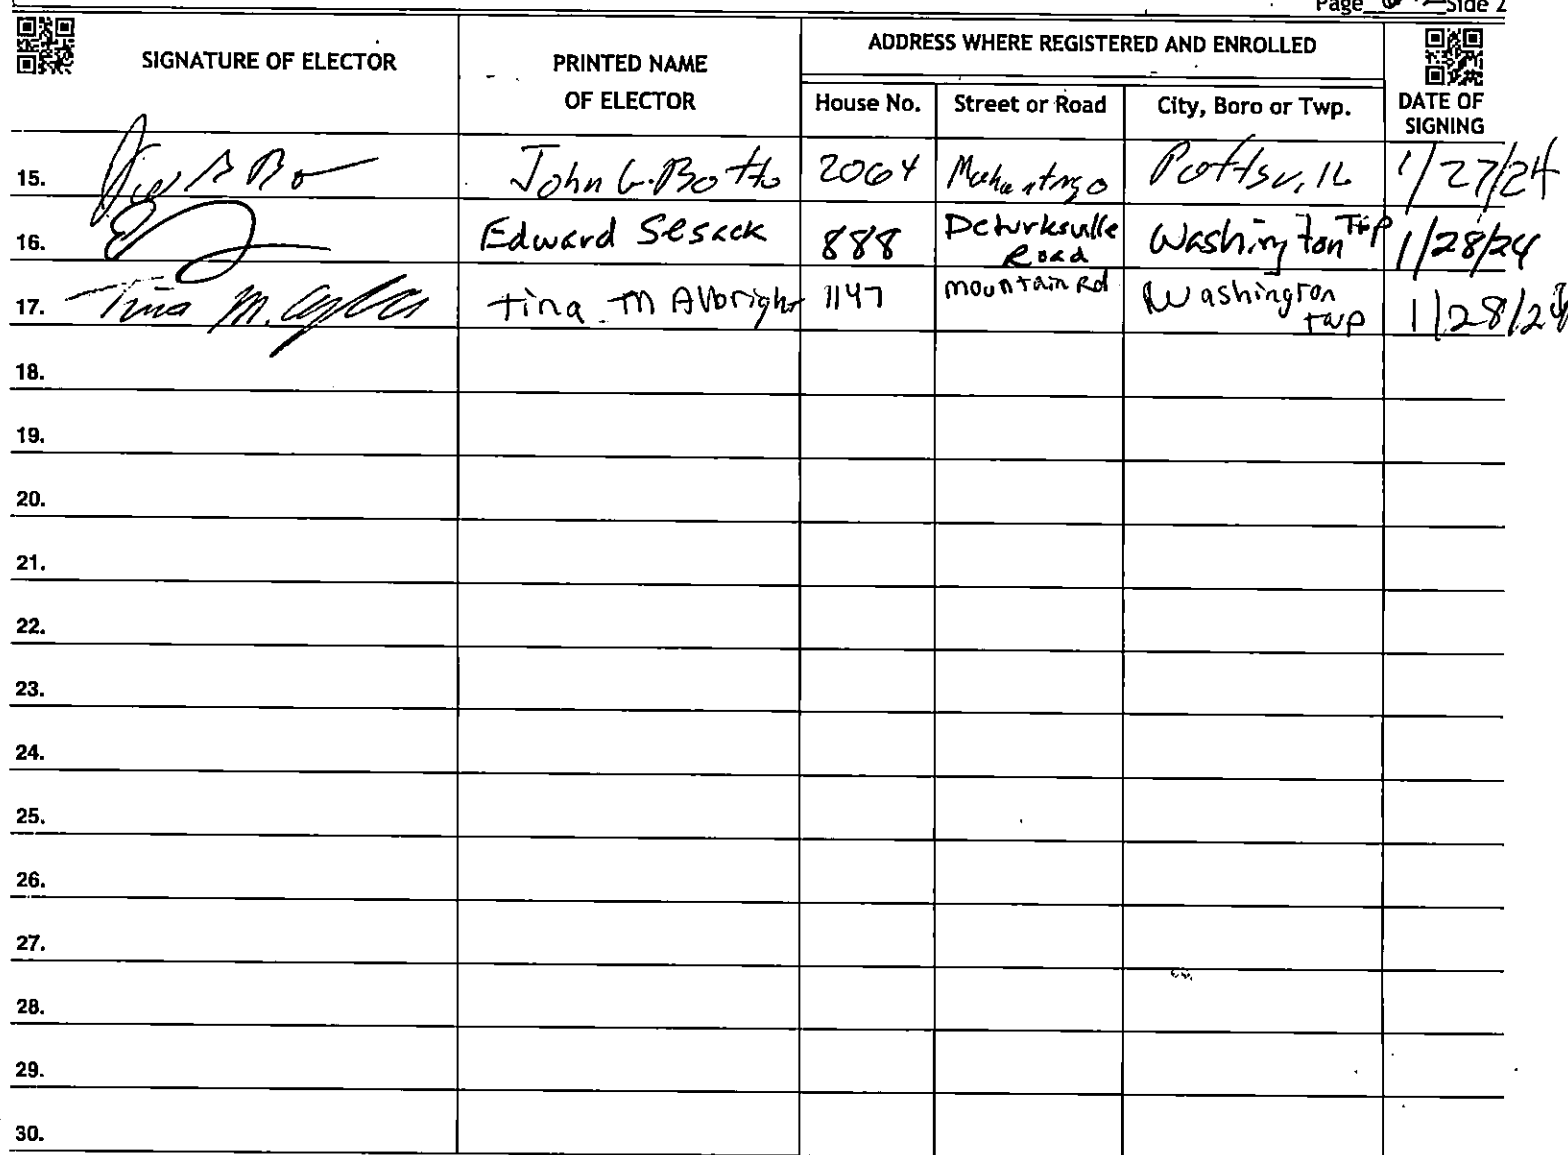 Page Side 2
SIGNATURE OF ELECTOR
PRINTED NAME
OF ELECTOR
ADDRESS WHERE REGISTERED AND ENROLLED
House No.
Street or Road
City, Boro or Twp.
DATE OF
SIGNING
15. John G. Botto 2064 Mahantngo Pottsvill 1/27/24
16. Edward Sesack 888 Deturksville Road Washington Twp 1/28/24
17. Tina M. Tina M Albright 1147 mountain Rd Washington twp 1/28/24
18.
19.
20.
21.
22.
23.
24.
25.
26.
27.
28.
29.
30.